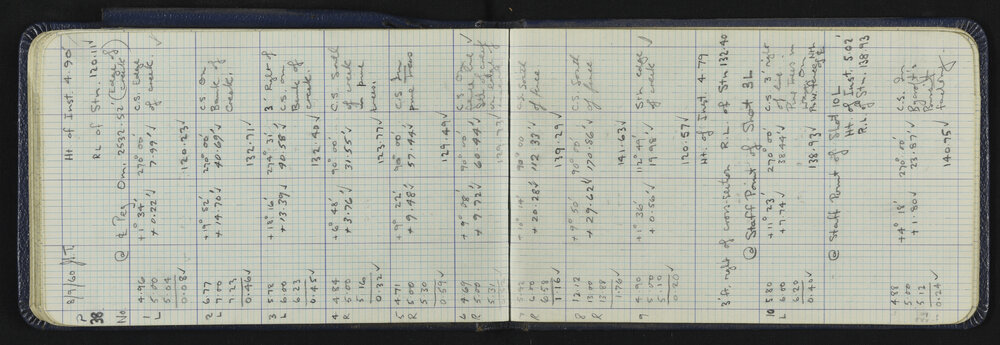 P 38
3/9/60 H.T.
Ht of Inst 4.90
RL of Stn. 120.11✓
No @ ₵ Peg Om. 2532.5' (Edge of Creek)
1 L 4.96 +1° 34' 270° 00' C.S. Edge
5.00 +0.22'✓ 7.99'✓ of creek
5.04
0.08✓ 120.23✓
2 L 6.77 +19° 52' 270° 00' C.S. On
7.00 +14.70'✓ 40.69'✓ Bank of
7.23 Creek.
0.46✓ 132.71✓
3 L 5.78 +18° 16' 274° 31' 3' Right of
6.00 +13.39✓ 40.58'✓ C.S. On
6.23 Bank of
0.45✓ 132.40✓ creek.
4 R 4.84 +6° 48' 90° 00' C.S. South
5.00 +3.76'✓ 31.55'✓ of creek
5.16 in pine
0.32✓ 123.77✓ trees.
5 R 4.71 +9° 22' 90° 00' C.S. In
5.00 +9.48'✓ 57.44✓ pine trees
5.30
0.59✓ 129.49✓
6 L R 4.69 +9° 08' 90° 00' C.S. On
5.00 +9.72'✓ 60.44'✓
5.31
7 R 5.42 +10° 14' 90° 00' C.S. South
6.00 +20.28✓ 112.33'✓ of fence
6.58
1.16✓ 139.29✓
8 R 12.12 +9° 50' 90° 00' C.S. South
13.00 +29.62✓ 170.86'✓ of fence
13.88
1.76✓ 141.63✓
9 4.90 +1° 36' 112° 49' Stn edge
5.00 +0.56'✓ 19.98'✓ of creek ✓
5.10
0.20✓ 120.57✓
Ht. of Inst 4.79
3 ft. right of cross-section R.L. of Stn 132.40
@ Staff Point of Shot 3L
10 L 5.80 +11° 23' 270° 00' C.S. 3' right
6.00 +7.74'✓ 38.44'✓ of line in
6.20 Pine trees.
0.40✓ 138.93✓
@ Staff Point of Shot 10L
Ht. of Inst. 5.02'
R.L. of Stn. 138.93
4.88 +4° 18' 270° 00' C.S. In
5.00 +1.80'✓ 23.87'✓
5.12
0.24✓ 140.75✓